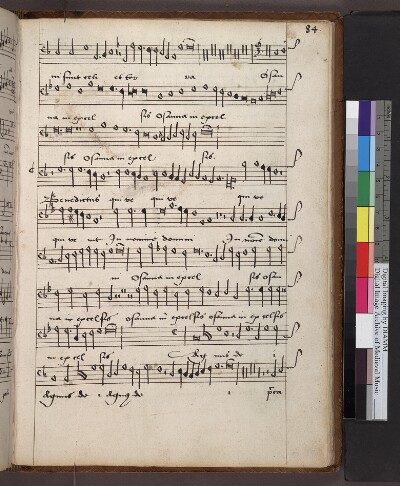 84
ni sunt celi et ter ra Osan
na in excel sis Osanna in excel
sis Osanna in excel sis.
Benedictus qui ve qui ve qui ve
qui ve nit In nomine domini In nomine domi
ni Osanna in excel sis osan
na in excelsis osanna in excelsis osanna in excelsis
in excel sis Agnus de i
Agnus de i Agnus de i
Digital Imaging by DIAMM
Digital Image Archive of Medieval Music